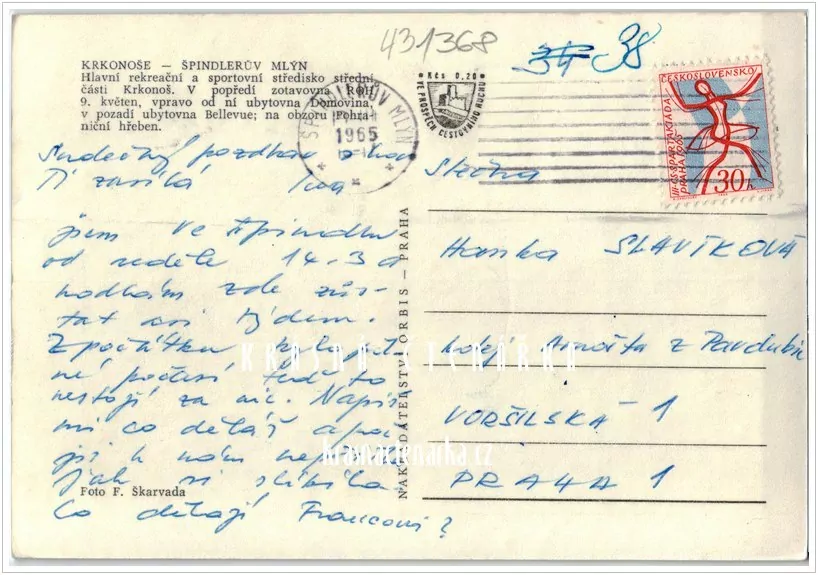 431368
38
KRKONOŠE — ŠPINDLERŮV MLÝN
Hlavní rekreační a sportovní středisko střední
části Krkonoš. V popředí zotavovna ROH
9. květen, vpravo od ní ubytovna Domovina,
v pozadí ubytovna Bellevue; na obzoru Pohra-
niční hřeben.
Kčs 0,20
VE PROSPĚCH CESTOVNÍHO RUCHU
ŠPINDLERŮV MLÝN
1965
ČESKOSLOVENSKO
III. CELOSTÁTNÍ SPARTAKIÁDA
PRAHA 1965
30h
Srdečný pozdrav z hor
Ti zasílá Iva
jsem ve Špindlu
od neděle 14.3 a
hodlám zde zůs-
tat asi týden.
Zpočátku bylo pěk-
né počasí teď to
nestojí za nic. Napiš
mi co děláš a
jak si slíbila.
Co dělají Francouzi?
Foto F. Škarvada
NAKLADATELSTVÍ ORBIS — PRAHA
Slečna
Hanka SLAVÍKOVÁ
kolej Arnošta z Pardubic
VORŠILSKÁ 1
PRAHA 1
KRÁSNÁ ČTENÁŘKA
krasnactenarka.cz